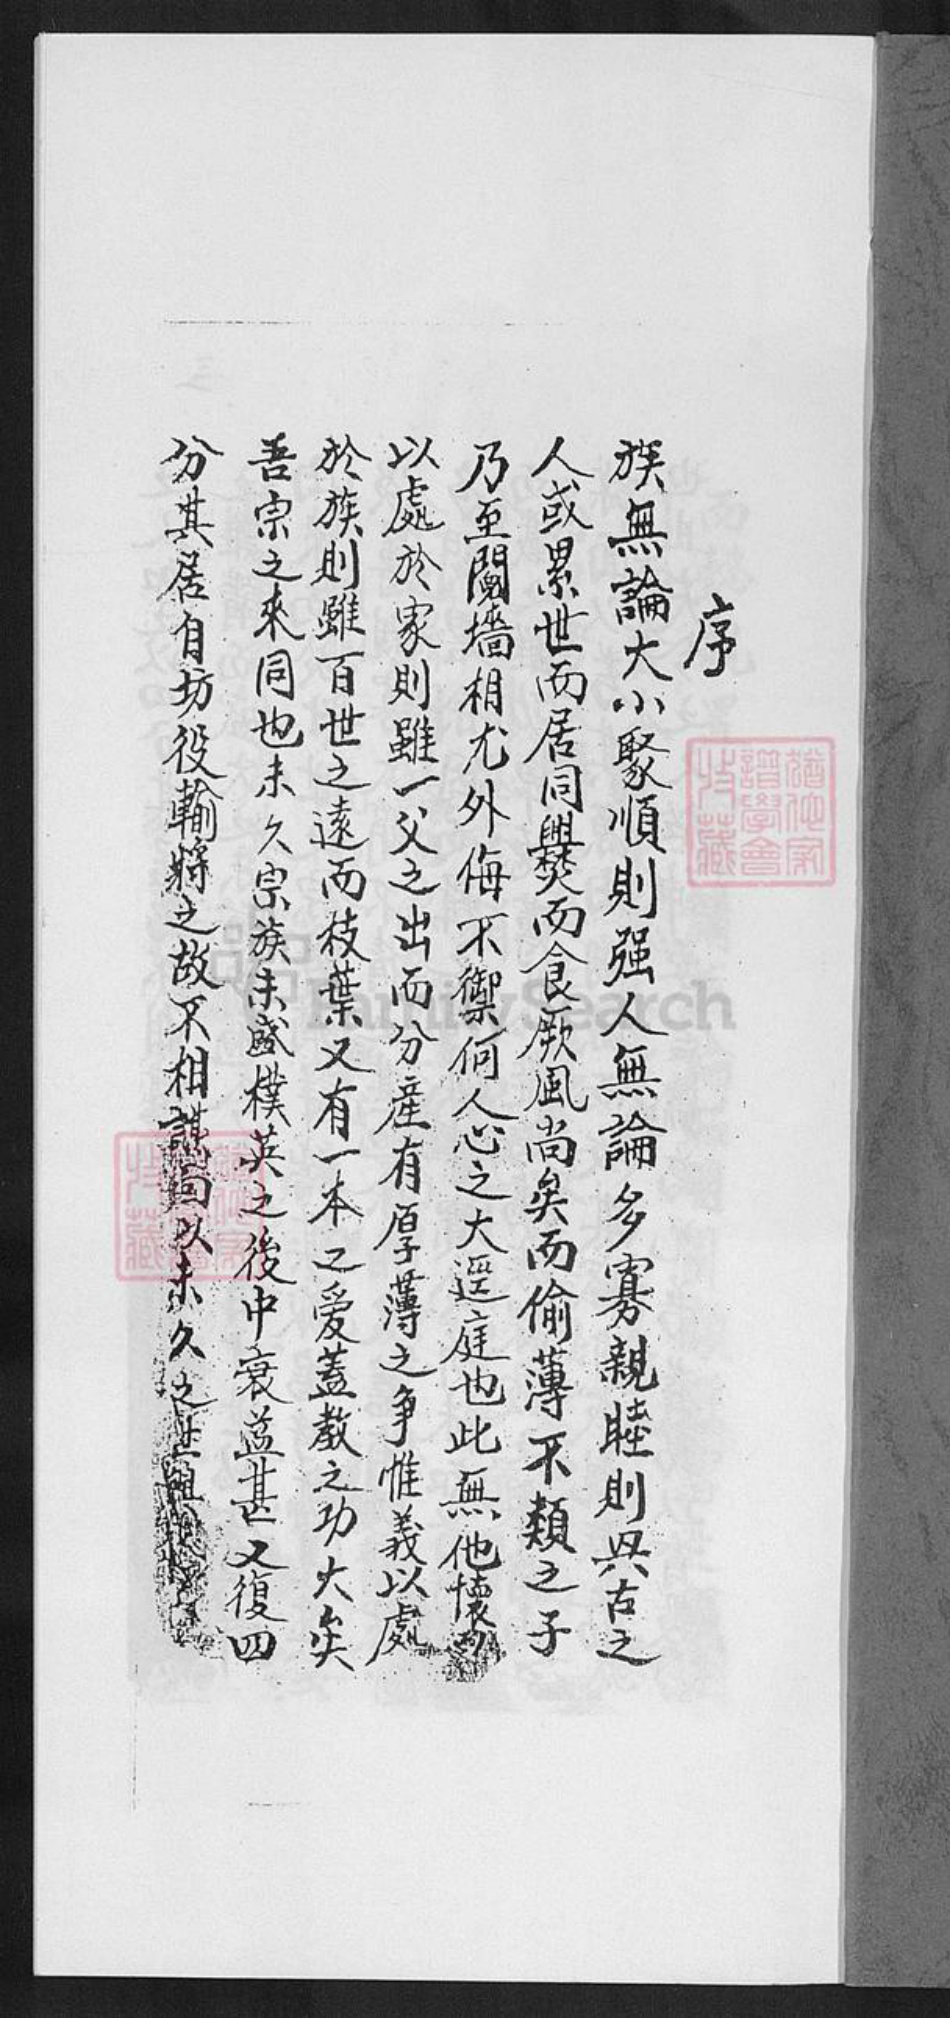 序
族無論大小聚順則强人無論多寡親睦則興古之
人或累世而居同爨而食厥風尚矣而偷薄不類之子
乃至鬩墻相尤外侮不禦何人心之大逕庭也此無他懷
以處於家則雖一父之出而分産有厚薄之争惟義以處
於族則雖百世之遠而枝葉又有一本之愛蓋教之功大矣
吾宗之來同也未久宗族未盛樸英之後中衰益甚又復四
分其居自坊役輸將之故不相謀面以未久之世
譜學會
收藏
FamilySearch
收藏